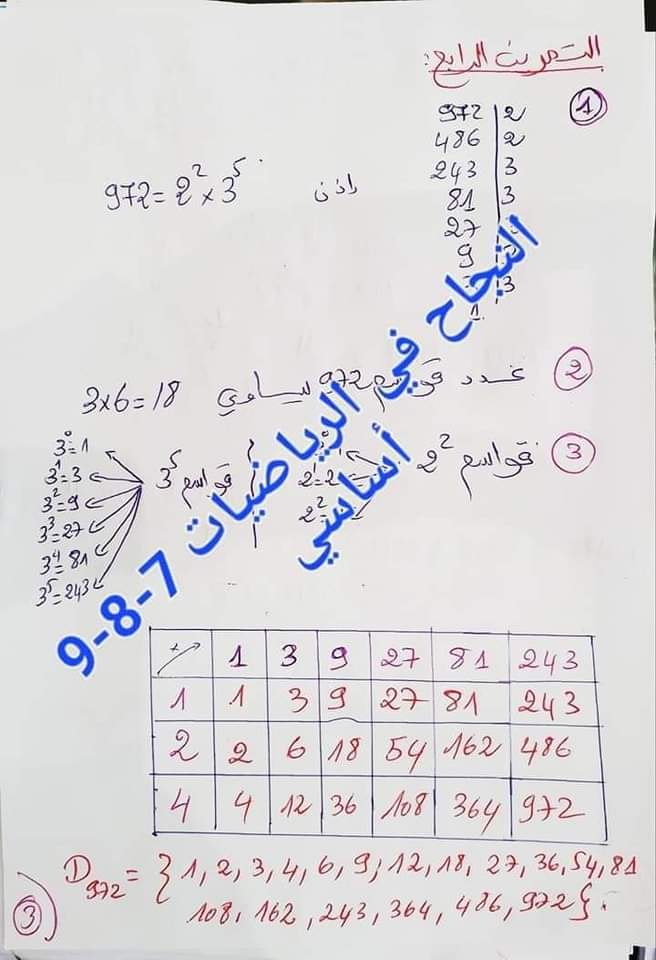 التمرين الرابع:
1
972 | 2
486 | 2
243 | 3
81 | 3
27
9
3
1
اذن 972 = 2² × 3⁵
2 عدد قواسم 972 يساوي 3×6=18
3 قواسم 2²
2¹=2
2²=
قواسم 3⁵
3⁰=1
3¹=3
3²=9
3³=27
3⁴=81
3⁵=243
النجاح في الرياضيات 7-8-9
أساسي
× 1 3 9 27 81 243
1 1 3 9 27 81 243
2 2 6 18 54 162 486
4 4 12 36 108 364 972
D972 = {1, 2, 3, 4, 6, 9, 12, 18, 27, 36, 54, 81
108, 162, 243, 364, 486, 972}.
3